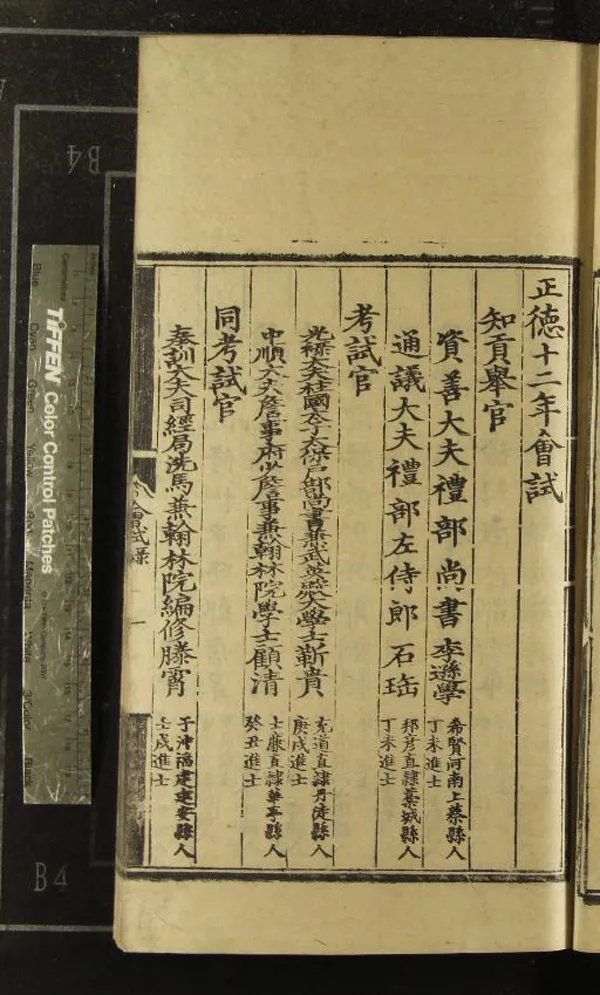 正德十二年會試
知貢舉官
資善大夫禮部尚書李遜學
希賢河南上蔡縣人
丁未進士
通議大夫禮部左侍郎石珤
邦彥直隸藁城縣人
丁未進士
考試官
光祿大夫柱國少子太保戶部尚書兼武英殿大學士靳貴
充道直隸丹徒縣人
庚戌進士
中順大夫詹事府少詹事兼翰林院學士顧清
士廉直隸華亭縣人
癸丑進士
同考試官
奉訓大夫司經局洗馬兼翰林院編修滕霄
子沖福建建安縣人
壬戌進士
會試錄
一
B4
B4
TIFFEN Color Control Patches
Blue
Cyan
Green
Yellow
Red
Magenta
White
3/Color
Black
Centimetres
Inches